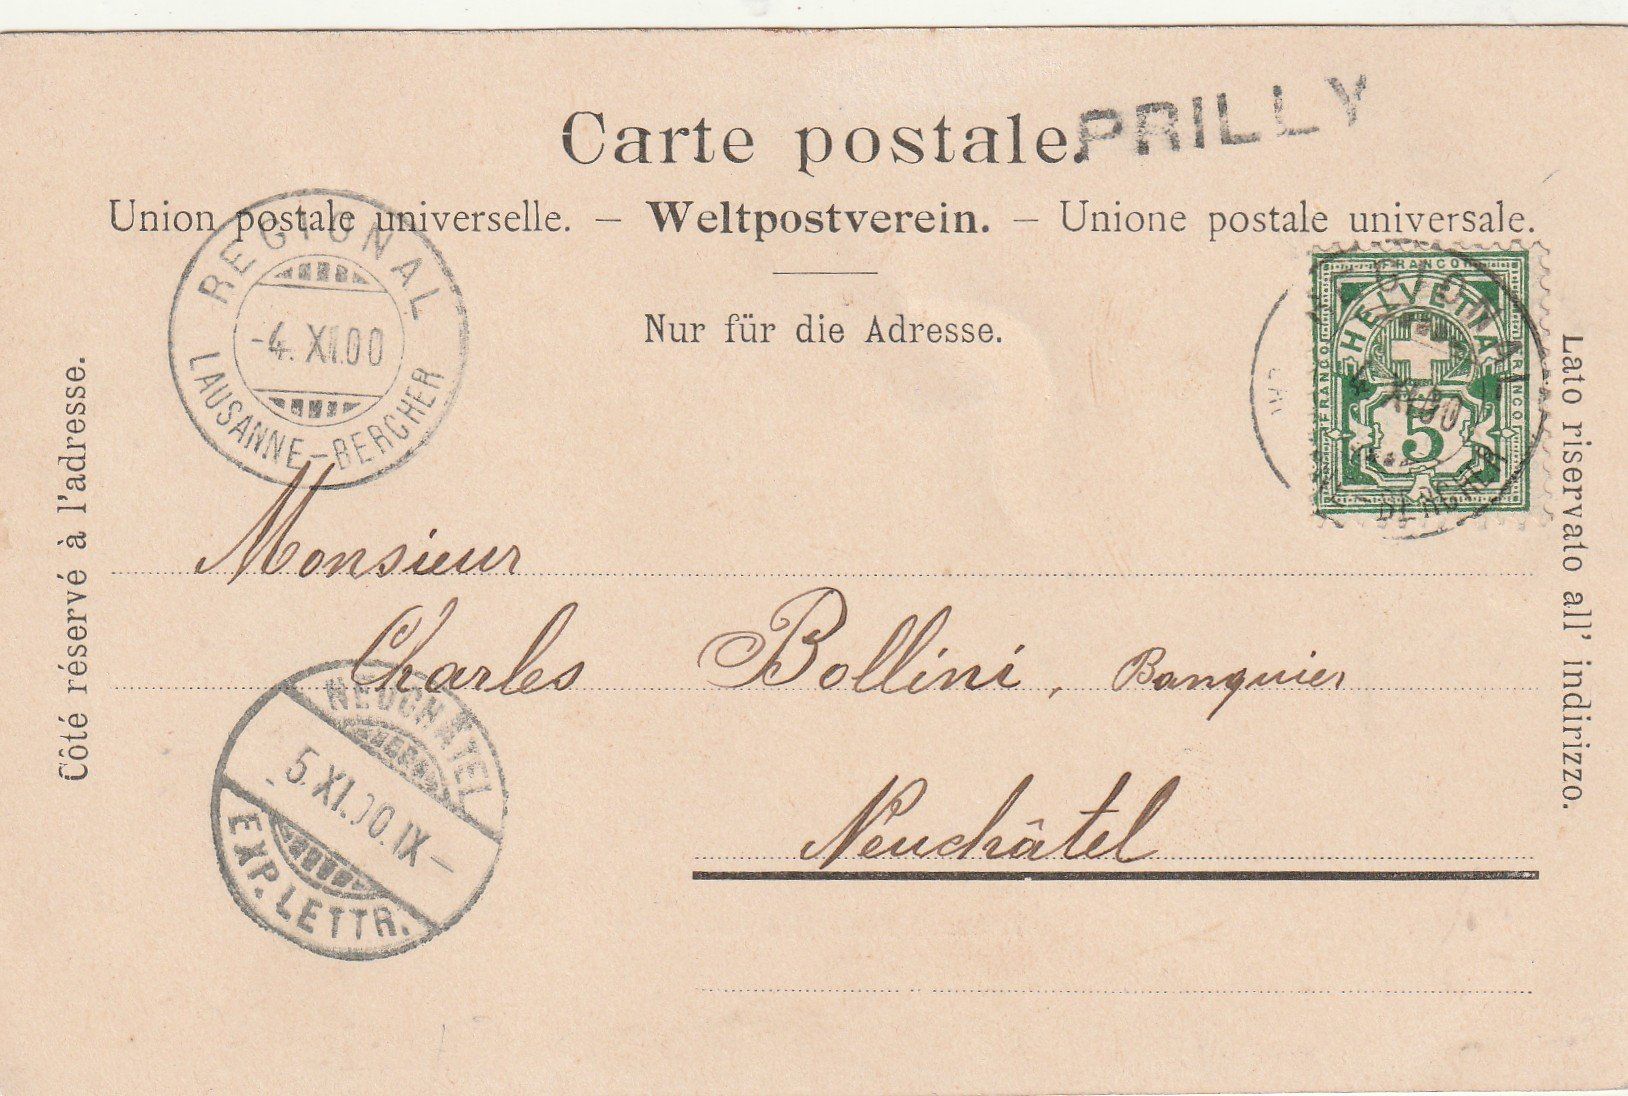 Carte postale. PRILLY
Union postale universelle. – Weltpostverein. – Unione postale universale.
Nur für die Adresse.
Côté réservé à l'adresse.
Lato riservato all' indirizzo.
REGIONAL
-4. XI.00
LAUSANNE–BERCHER
FRANCO
HELVETIA
FRANCO
FRANCO
5
XI.00
BERCHER
Monsieur
Charles Bollini, Banquier
Neuchâtel
NEUCHATEL
- 5.XI.00.IX –
EXP. LETTR.